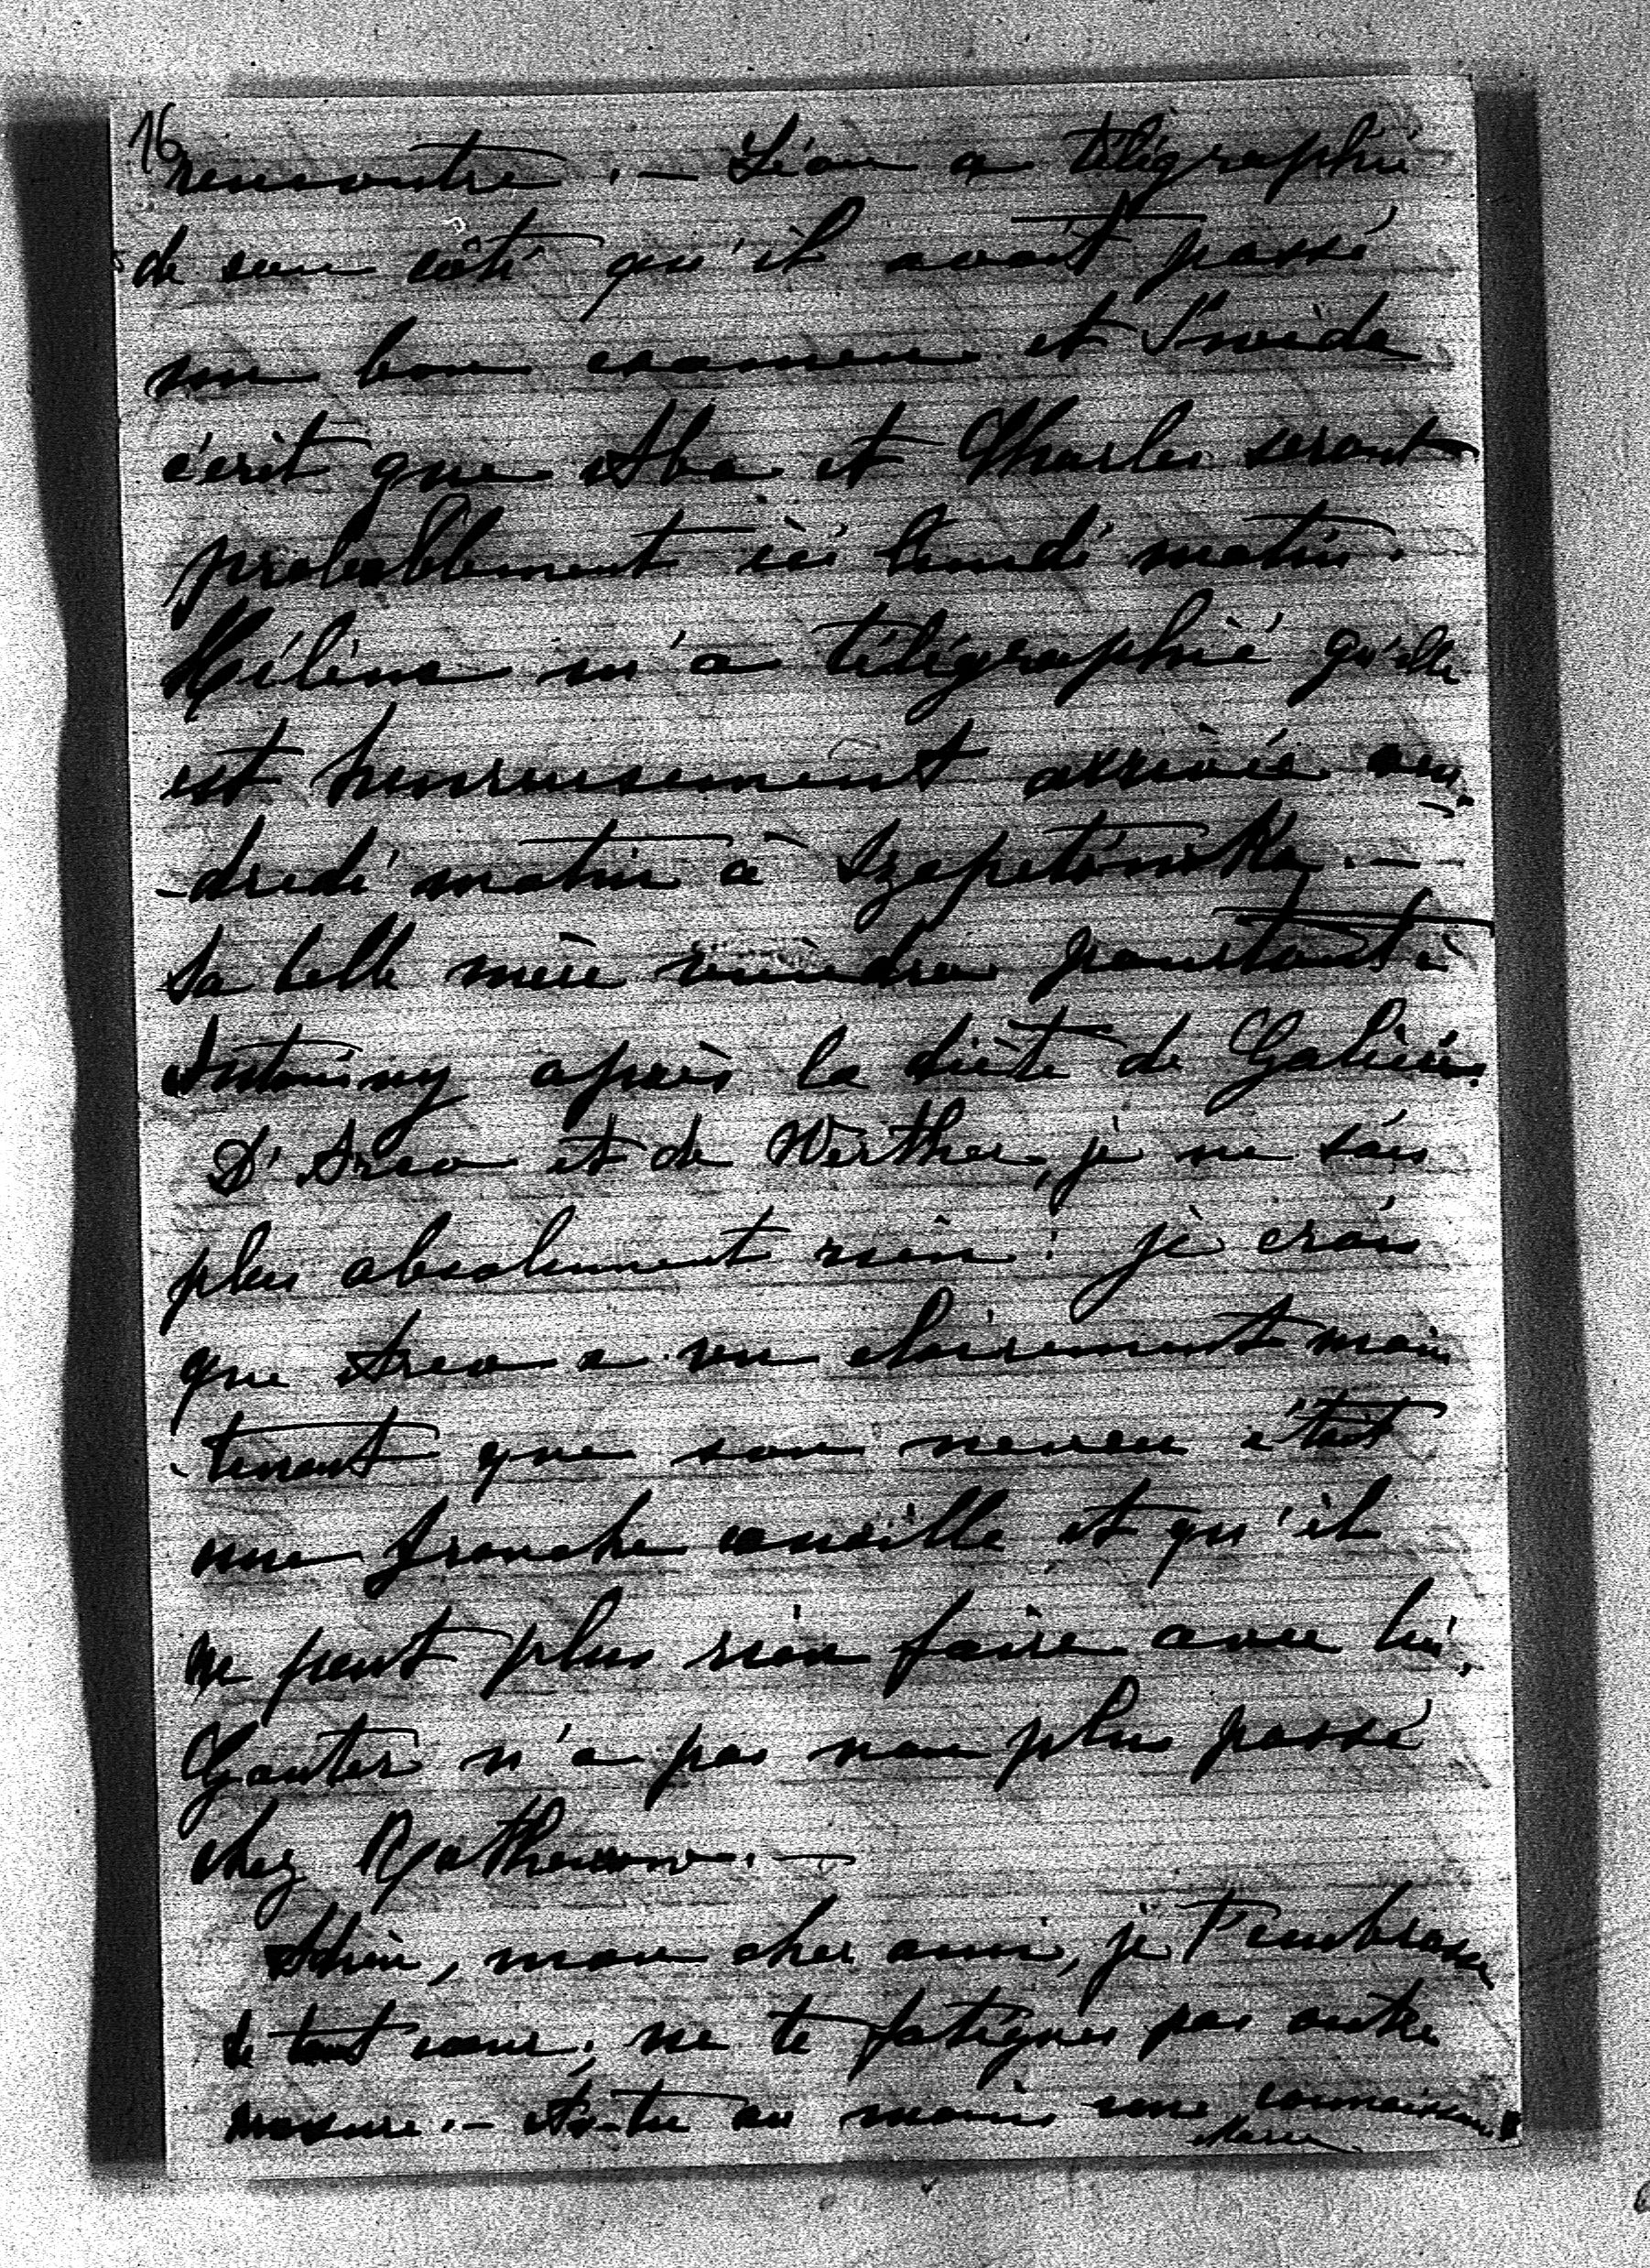 16
rencontre. — Léon a télégraphié
de son côté qu'il avait passé
un bon examen et
écrit que Aba et Charles seront
probablement ici lundi matin.
Hélène m'a télégraphié qu'elle
est heureusement arrivée ven-
-dredi matin à Szepetowka. —
Sa belle mère viendra pourtant à
Antoniny après la diète de Galicie.
D'Arco et de Werther, je ne sais
plus absolument rien: je crois
que Arco a vu clairement main
-tenant que son neveu était
une franche canaille et qu'il
ne peut plus rien faire avec lui.
n'a pas non plus passé
chez
Adieu, mon cher ami, je t'embrasse
de tout cœur; ne te fatigues pas outre
mesure. — As-tu au moins une connaissance
Marie